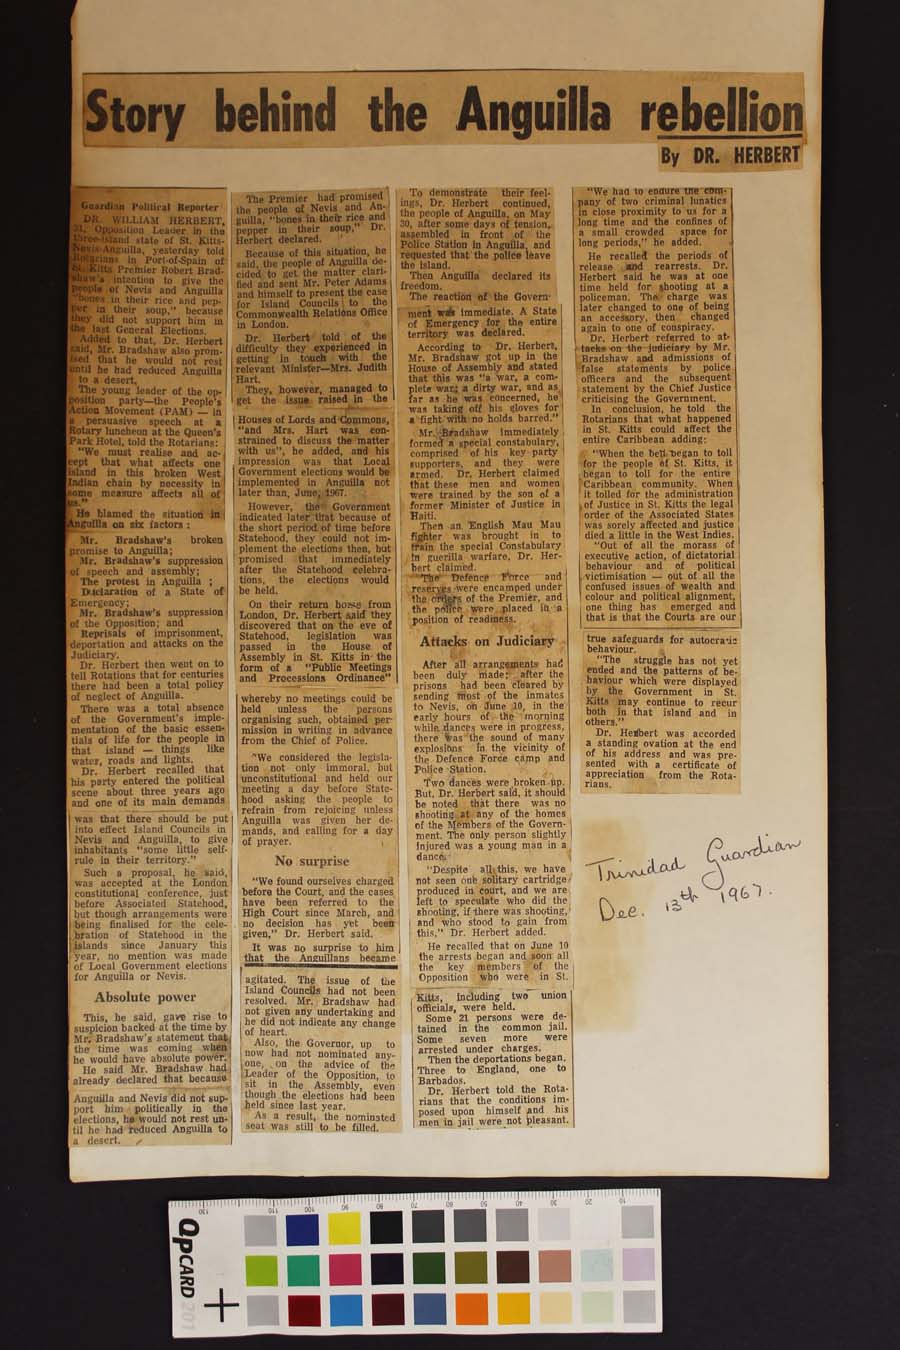 Story behind the Anguilla rebellion
By DR. HERBERT
Guardian Political Reporter
DR. WILLIAM HERBERT,
31, Opposition Leader in the
three-island state of St. Kitts-
Nevis-Anguilla, yesterday told
Rotarians in Port-of-Spain of
St. Kitts Premier Robert Brad-
shaw's intention to give the
people of Nevis and Anguilla
"bones in their rice and pep-
per in their soup," because
they did not support him in
the last General Elections.
Added to that, Dr. Herbert
said, Mr. Bradshaw also prom-
ised that he would not rest
until he had reduced Anguilla
to a desert,
The young leader of the op-
position party—the People's
Action Movement (PAM) — in
a persuasive speech at a
Rotary luncheon at the Queen's
Park Hotel, told the Rotarians:
"We must realise and ac-
cept that what affects one
island in this broken West
Indian chain by necessity in
some measure affects all of
us."
He blamed the situation in
Anguilla on six factors :
Mr. Bradshaw's broken
promise to Anguilla;
Mr. Bradshaw's suppression
of speech and assembly;
The protest in Anguilla ;
Declaration of a State of
Emergency;
Mr. Bradshaw's suppression
of the Opposition; and
Reprisals of imprisonment,
deportation and attacks on the
Judiciary.
Dr. Herbert then went on to
tell Rotations that for centuries
there had been a total policy
of neglect of Anguilla.
There was a total absence
of the Government's imple-
mentation of the basic essen-
tials of life for the people in
that island — things like
water, roads and lights.
Dr. Herbert recalled that
his party entered the political
scene about three years ago
and one of its main demands
was that there should be put
into effect Island Councils in
Nevis and Anguilla, to give
inhabitants "some little self-
rule in their territory."
Such a proposal, he said,
was accepted at the London
constitutional conference, just
before Associated Statehood,
but though arrangements were
being finalised for the cele-
bration of Statehood in the
islands since January this
year, no mention was made
of Local Government elections
for Anguilla or Nevis.
Absolute power
This, he said, gave rise to
suspicion backed at the time by
Mr. Bradshaw's statement that
the time was coming when
he would have absolute power.
He said Mr. Bradshaw had
already declared that because
Anguilla and Nevis did not sup-
port him politically in the
elections, he would not rest un-
til he had reduced Anguilla to
a desert.
The Premier had promised
the people of Nevis and An-
guilla, "bones in their rice and
pepper in their soup," Dr.
Herbert declared.
Because of this situation, he
said, the people of Anguilla de-
cided to get the matter clari-
fied and sent Mr. Peter Adams
and himself to present the case
for Island Councils to the
Commonwealth Relations Office
in London.
Dr. Herbert told of the
difficulty they experienced in
getting in touch with the
relevant Minister—Mrs. Judith
Hart.
They, however, managed to
get the issue raised in the
Houses of Lords and Commons,
"and Mrs. Hart was con-
strained to discuss the matter
with us", he added, and his
impression was that Local
Government elections would be
implemented in Anguilla not
later than, June, 1967.
However, the Government
indicated later that because of
the short period of time before
Statehood, they could not im-
plement the elections then, but
promised that immediately
after the Statehood celebra-
tions, the elections would
be held.
On their return home from
London, Dr. Herbert said they
discovered that on the eve of
Statehood, legislation was
passed in the House of
Assembly in St. Kitts in the
form of a "Public Meetings
and Processions Ordinance"
whereby no meetings could be
held unless the persons
organising such, obtained per-
mission in writing in advance
from the Chief of Police.
"We considered the legisla-
tion not only immoral, but
unconstitutional and held our
meeting a day before State-
hood asking the people to
refrain from rejoicing unless
Anguilla was given her de-
mands, and calling for a day
of prayer.
No surprise
"We found ourselves charged
before the Court, and the cases
have been referred to the
High Court since March, and
no decision has yet been
given," Dr. Herbert said.
It was no surprise to him
that the Anguillans became
agitated. The issue of the
Island Councils had not been
resolved. Mr. Bradshaw had
not given any undertaking and
he did not indicate any change
of heart.
Also, the Governor, up to
now had not nominated any-
one, on the advice of the
Leader of the Opposition, to
sit in the Assembly, even
though the elections had been
held since last year.
As a result, the nominated
seat was still to be filled.
To demonstrate their feel-
ings, Dr. Herbert continued,
the people of Anguilla, on May
30, after some days of tension,
assembled in front of the
Police Station in Anguilla, and
requested that the police leave
the island.
Then Anguilla declared its
freedom.
The reaction of the Govern-
ment was immediate. A State
of Emergency for the entire
territory was declared.
According to Dr. Herbert,
Mr. Bradshaw got up in the
House of Assembly and stated
that this was "a war, a com-
plete war; a dirty war, and as
far as he was concerned, he
was taking off his gloves for
a fight with no holds barred."
Mr. Bradshaw immediately
formed a special constabulary,
comprised of his key party
supporters, and they were
armed. Dr. Herbert claimed
that these men and women
were trained by the son of a
former Minister of Justice in
Haiti.
Then an English Mau Mau
fighter was brought in to
train the special Constabulary
in guerilla warfare, Dr. Her-
bert claimed.
The Defence Force and
reserves were encamped under
the orders of the Premier, and
the police were placed in a
position of readiness.
Attacks on Judiciary
After all arrangements had
been duly made; after the
prisons had been cleared by
sending most of the inmates
to Nevis, on June 10, in the
early hours of the morning
while dances were in progress,
there was the sound of many
explosions in the vicinity of
the Defence Force camp and
Police Station.
Two dances were broken up.
But, Dr. Herbert said, it should
be noted that there was no
shooting at any of the homes
of the Members of the Govern-
ment. The only person slightly
injured was a young man in a
dance.
"Despite all this, we have
not seen one solitary cartridge
produced in court, and we are
left to speculate who did the
shooting, if there was shooting,
and who stood to gain from
this," Dr. Herbert added.
He recalled that on June 10
the arrests began and soon all
the key members of the
Opposition who were in St.
Kitts, including two union
officials, were held.
Some 21 persons were de-
tained in the common jail.
Some seven more were
arrested under charges.
Then the deportations began.
Three to England, one to
Barbados.
Dr. Herbert told the Rota-
rians that the conditions im-
posed upon himself and his
men in jail were not pleasant.
"We had to endure the com-
pany of two criminal lunatics
in close proximity to us for a
long time and the confines of
a small crowded space for
long periods," he added.
He recalled the periods of
release and rearrests. Dr.
Herbert said he was at one
time held for shooting at a
policeman. The charge was
later changed to one of being
an accessory, then changed
again to one of conspiracy.
Dr. Herbert referred to at-
tacks on the judiciary by Mr.
Bradshaw and admissions of
false statements by police
officers and the subsequent
statement by the Chief Justice
criticising the Government.
In conclusion, he told the
Rotarians that what happened
in St. Kitts could affect the
entire Caribbean adding:
"When the bell began to toll
for the people of St. Kitts, it
began to toll for the entire
Caribbean community. When
it tolled for the administration
of Justice in St. Kitts the legal
order of the Associated States
was sorely affected and justice
died a little in the West Indies.
"Out of all the morass of
executive action, of dictatorial
behaviour and of political
victimisation — out of all the
confused issues of wealth and
colour and political alignment,
one thing has emerged and
that is that the Courts are our
true safeguards for autocratic
behaviour.
"The struggle has not yet
ended and the patterns of be-
haviour which were displayed
by the Government in St.
Kitts may continue to recur
both in that island and in
others."
Dr. Herbert was accorded
a standing ovation at the end
of his address and was pre-
sented with a certificate of
appreciation from the Rota-
rians.
Trinidad Guardian
Dec. 13th 1967.
QPCARD 201